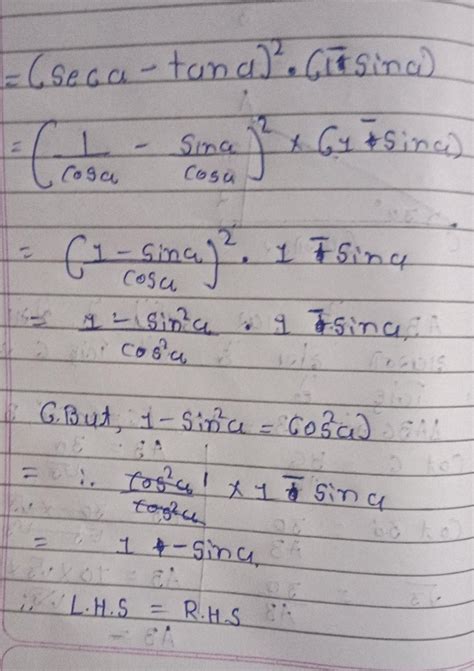 = (sec a - tan a)². (1 - sin a)
= (1/cos a - sin a/cos a)² × (1 - sin a)
= (1 - sin a/cos a)² . 1 - sin a
= 1 - sin²a/cos²a . 1 - sin a
(But, 1 - sin²a = cos²a)
= ∴ cos²a/cos²a 1 × 1 - sin a
= 1 - sin a
∴ L.H.S = R.H.S